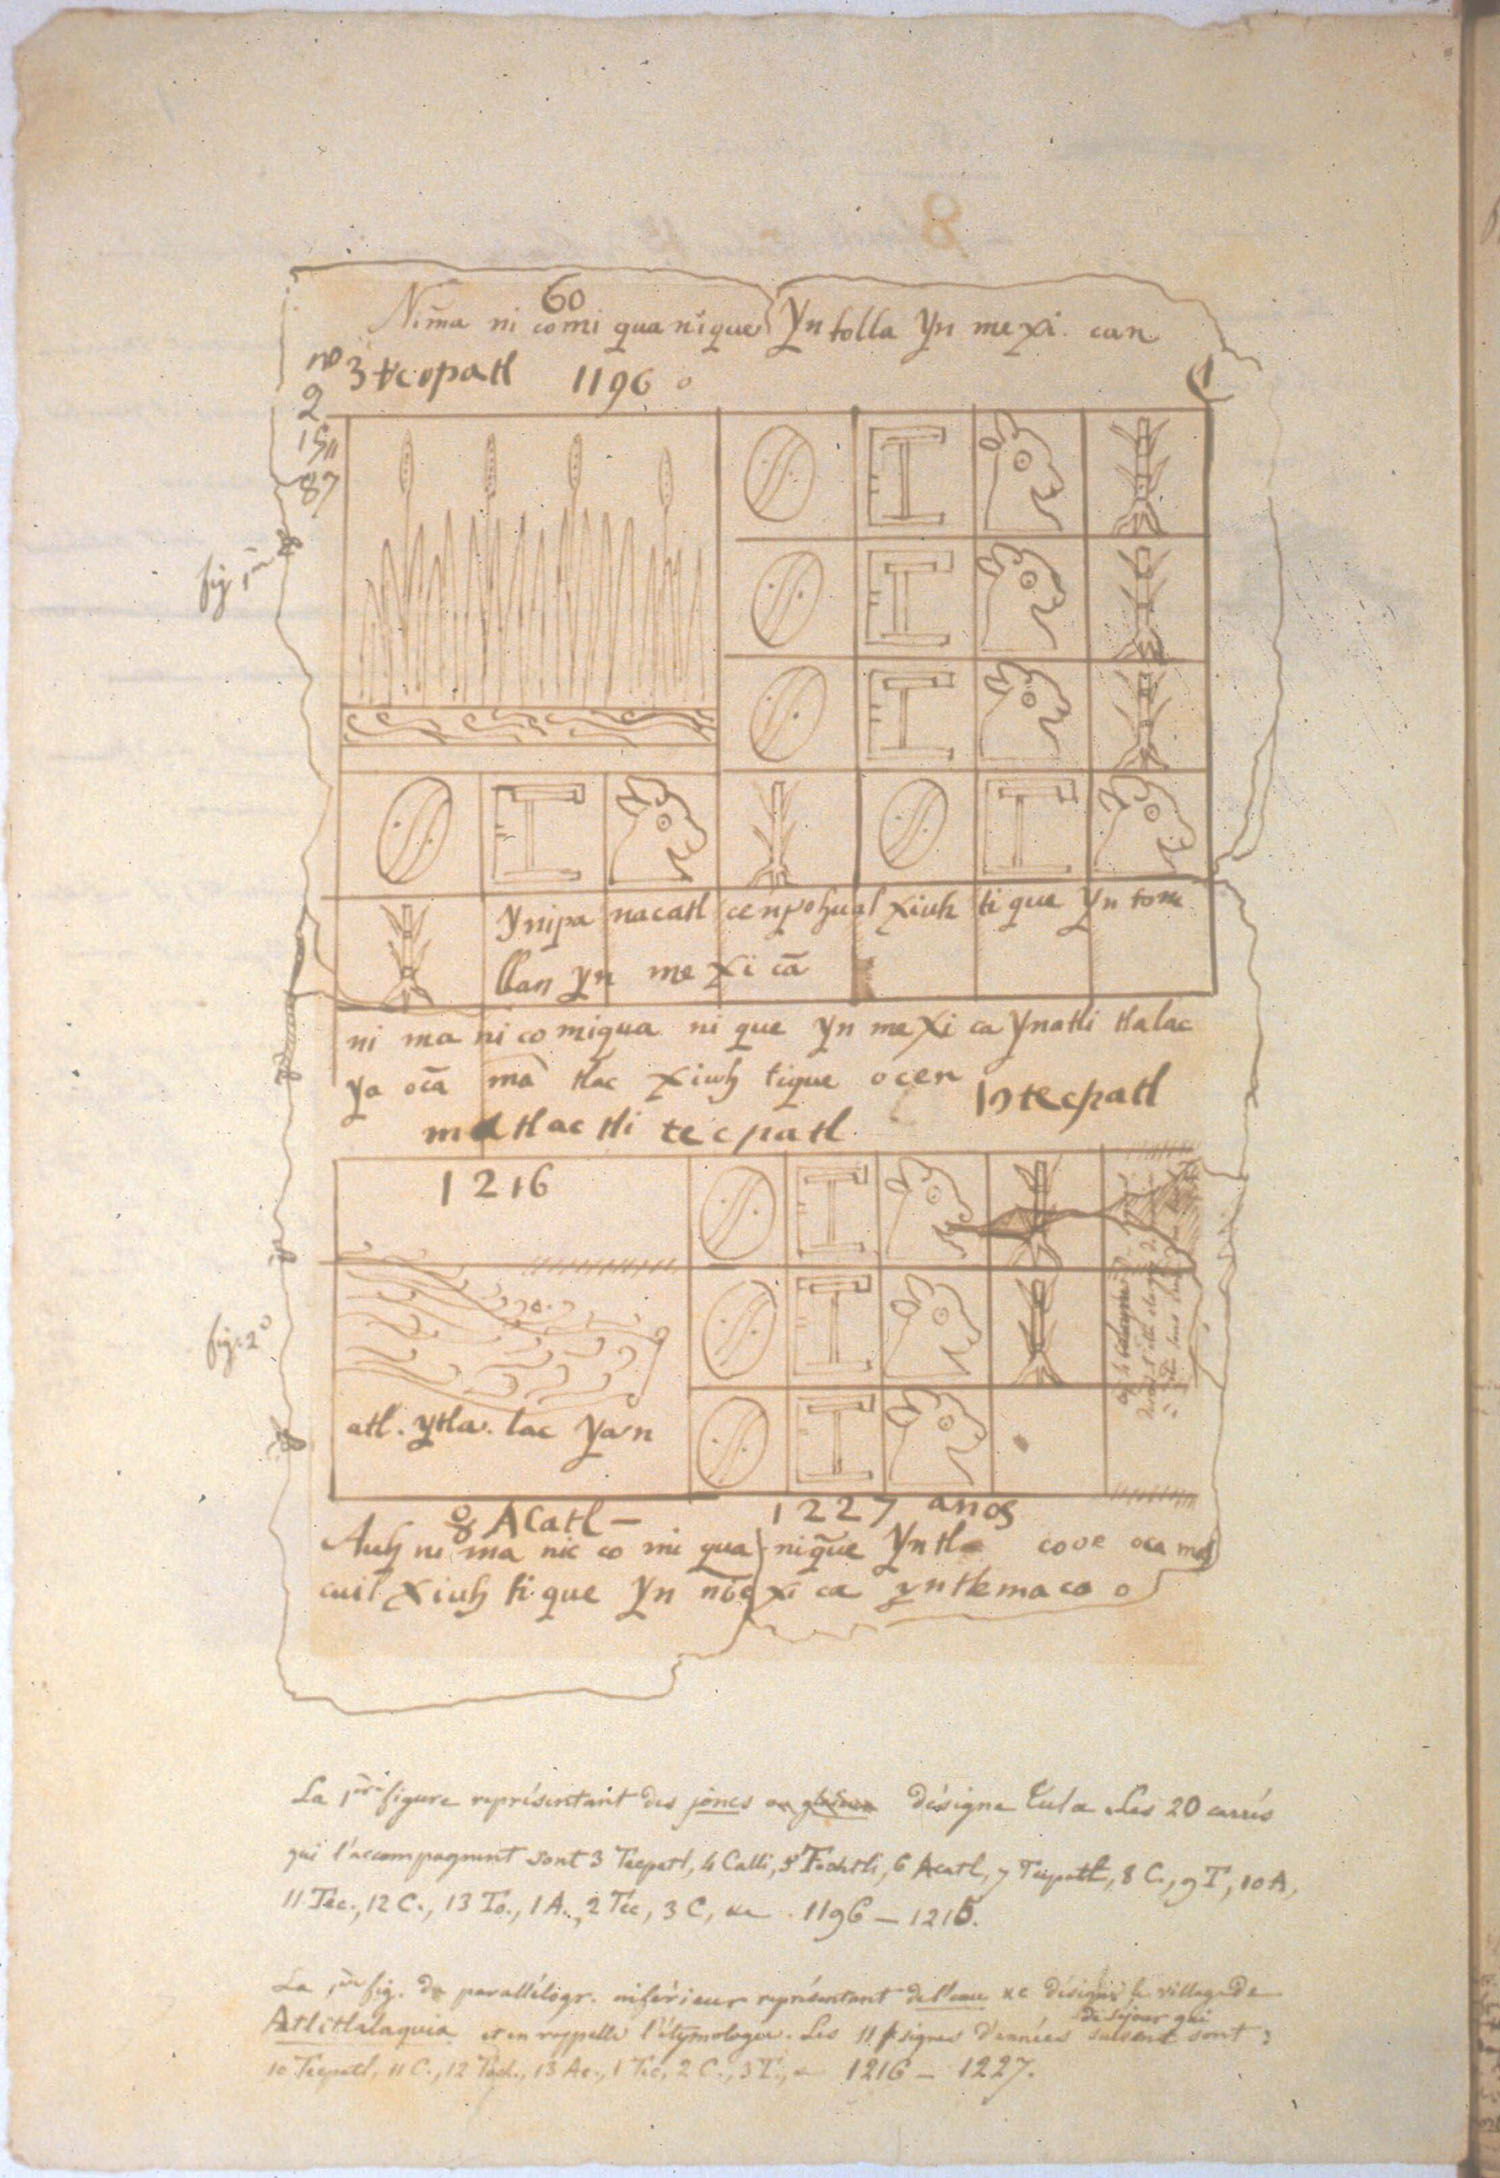 8
60
Nim̃a ni comi qua nique Yn tolla Yn me xi can
no 3 tecpatl 1196 o
2
15
87
fig 1re
Ynipa nacatl cenpohual xiuh ti que Yn tom
llan yn me xi cā
ni ma ni co miqua ni que yn me xi ca ynatli tlalac
ya ocā mā tlac xiuh tique ocen 10 tecpatl
matlac tli tecpatl
1216
fig. 2o
atl. ytla. lac Yan
8 Acatl – 1227 anos
Auh ni ma nic co mi qua niq̃ue Yn tla cove oca ma
cuil xiuh ti que Yn me xi ca yntlemaco o
La 1ère figure représentant des joncs désigne Tula. Les 20 carrés
qui l'accompagnent sont 3 Tecpatl, 4 Calli, 5 Tochtli, 6 Acatl, 7 Tecpatl, 8 C., 9 T, 10 A,
11 Tec., 12 C., 13 To., 1 A., 2 Tec, 3 C, &c. 1196 – 1215.
La 1ère fig. du parallélogr. inférieur représentant de l'eau &c désigne le village de
Atlitlalaquia et en rappelle l'étymologie. Les 11 signes d'années de séjour qui suivent sont :
10 Tecpatl, 11 C., 12 Toch., 13 Ac., 1 Tec, 2 C., 3 T., &c 1216 – 1227.